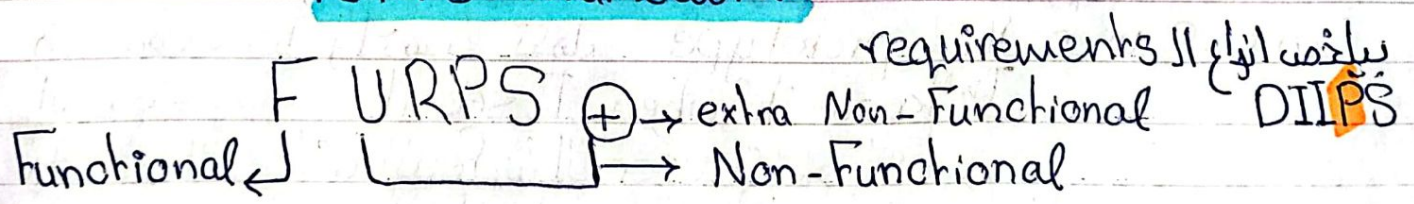 بيلخص انواع ال requirements
F URPS + → extra Non-Functional DIIPS
Functional ↵ → Non-Functional